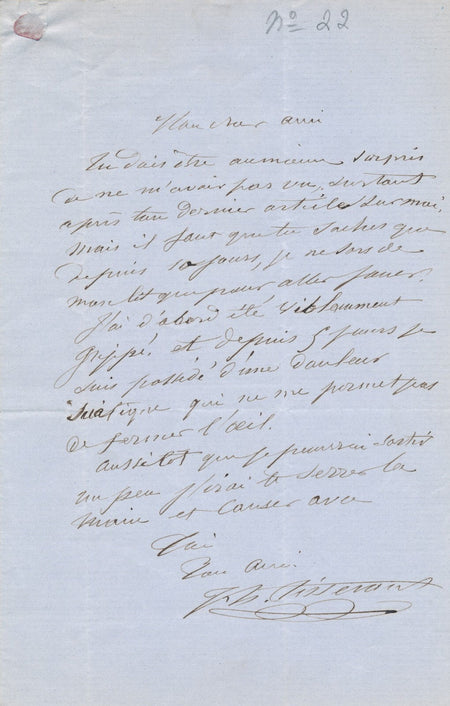 No 22
Mon cher ami
Tu dois être au mieux surpris
de ne m'avoir pas vu, surtout
après ton dernier article sur moi,
mais il faut que tu saches que
depuis 10 jours, je ne sors de
mon lit que pour aller jouer.
J'ai d'abord été violemment
grippé, et depuis 5 jours je
suis possédé d'une douleur
sciatique qui ne me permet pas
de fermer l'œil.
aussitot que je pourrai sortir
un peu j'irai te serrer la
main et causer avec
toi
Ton ami.
Tisserant